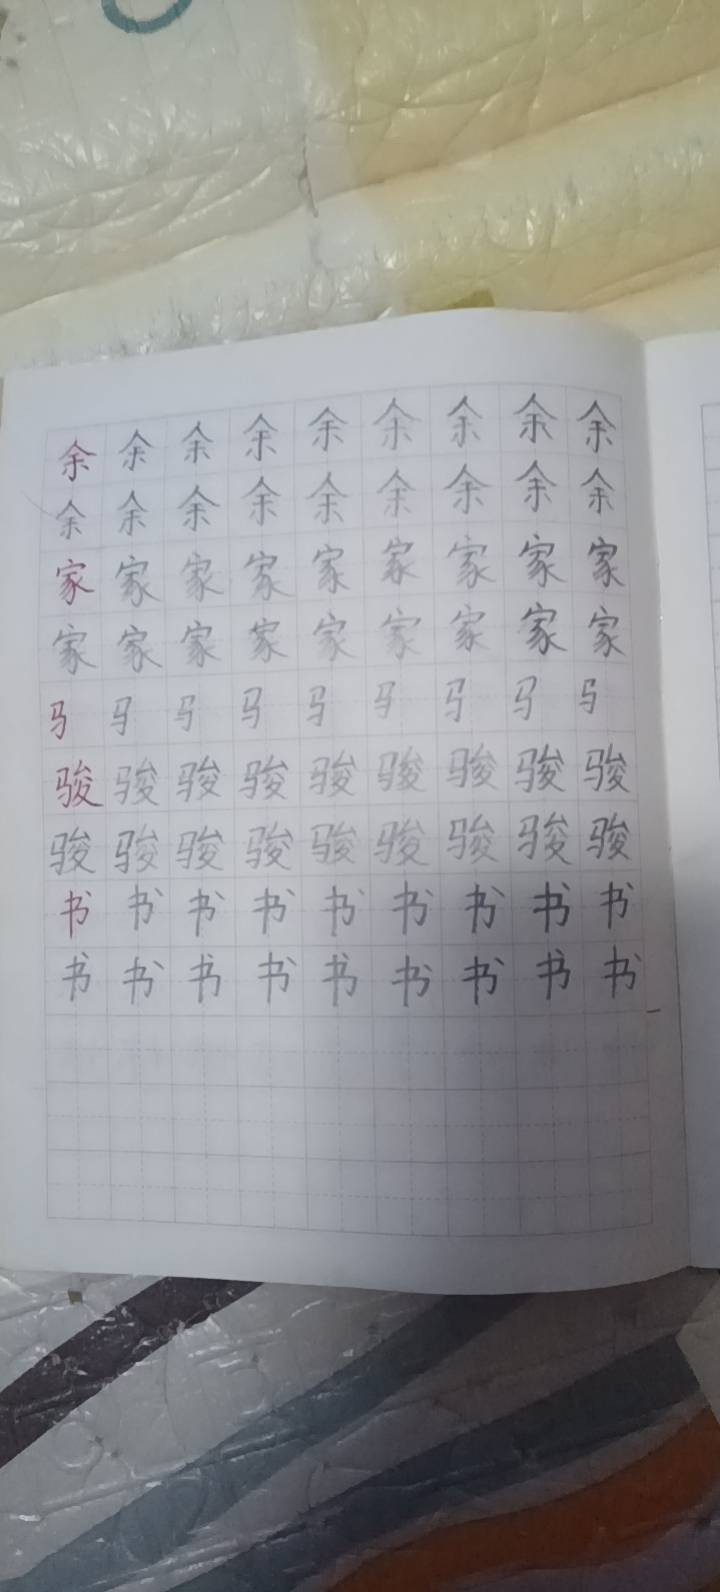 余余余余余余余余余
余余余余余余余余余
家家家家家家家家家
家家家家家家家家家
马马马马马马马马马
骏骏骏骏骏骏骏骏骏
骏骏骏骏骏骏骏骏骏
书书书书书书书书书
书书书书书书书书书